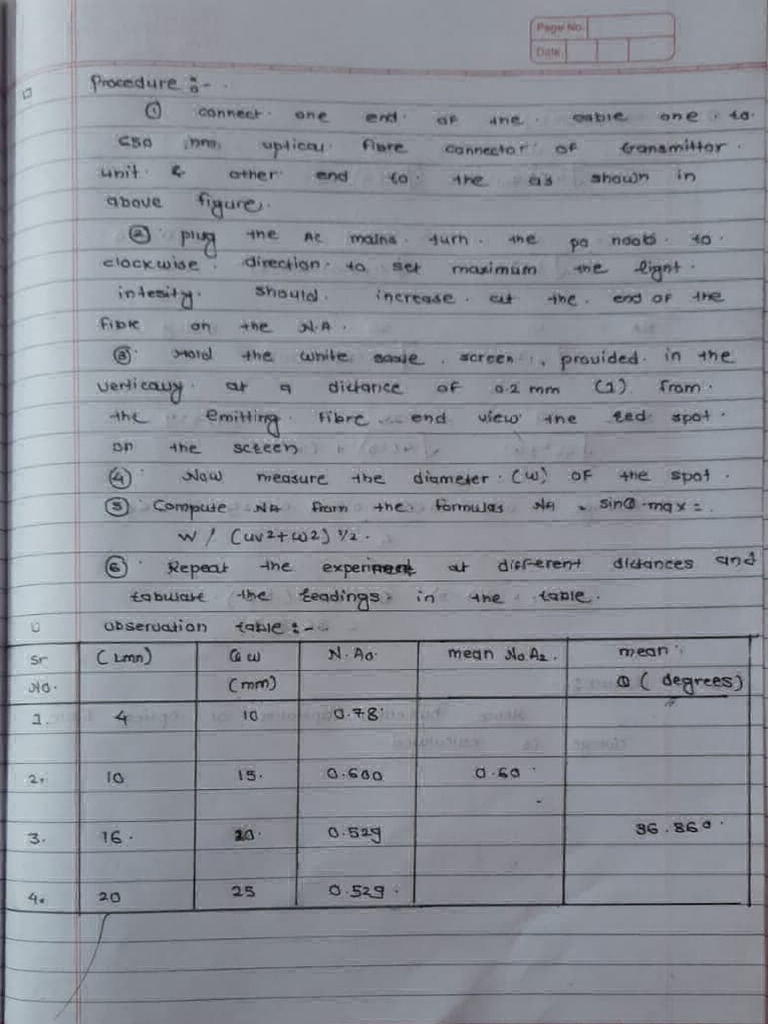 Page No.
Date
Procedure :- .
① connect one end of the cable one to
650 nm optical fibre connector of transmittor
unit & other end to the as shown in
above figure.
② plug the AC mains turn the po noob to
clockwise direction to set maximum the light
intesity should increase at the end of the
Fibre on the N.A.
③ Hold the white scale screen, provided in the
vertically at a dictance of 0.2 mm (1) from
the emitting fibre end view the red spot
on the screen
④ Now measure the diameter (w) of the spot.
⑤ Compute NA from the formulas NA = sinθ max =
w / (uv2+w2) 1/2.
⑥ Repeat the experiment at different dictances and
tabulate the readings in the table.
observation table :-
Sr No. (Lmn) w (mm) N.Ao mean No A2. mean θ (degrees)
1. 4 10 0.78
2. 10 15. 0.600 0.60
3. 16. 20. 0.529 36.86°
4. 20 25 0.529.